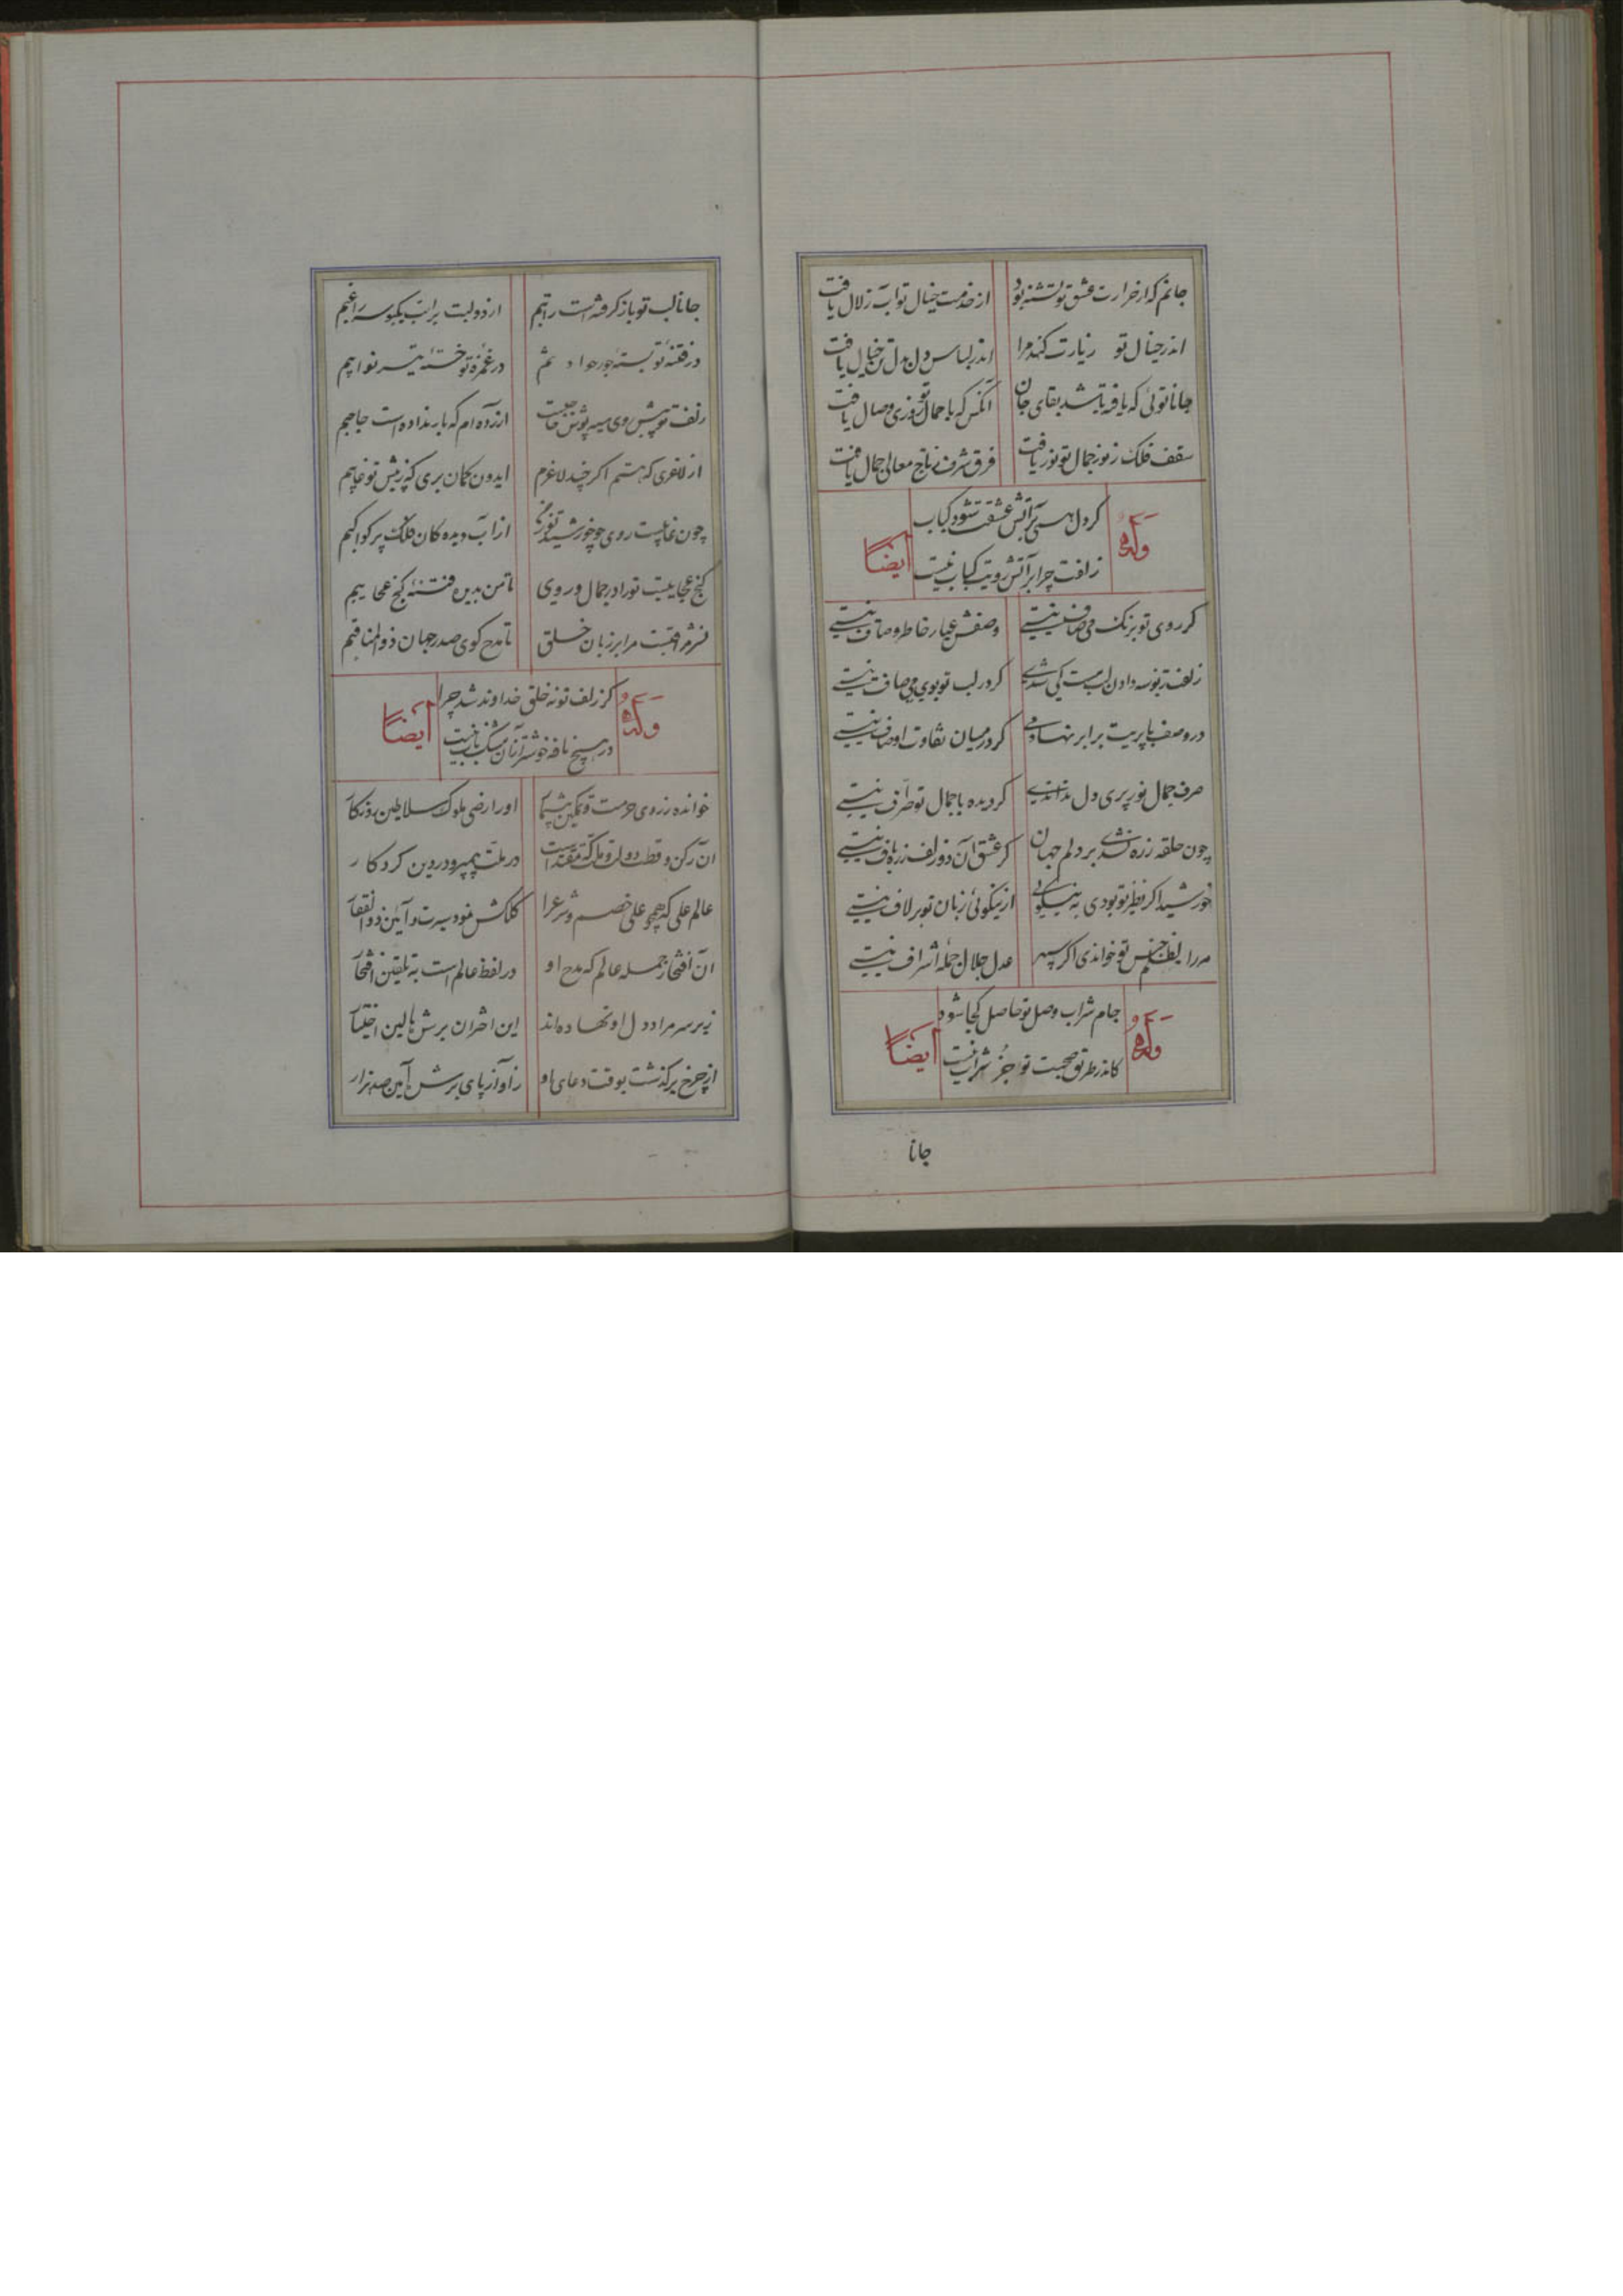 جانم که از حرارت عشق تو تشنه بود
از خدمت خیال تو آب زلال یافت
اندر خیال تو زیارت کند مرا
اندر لباس دل بدل تن خیال یافت
جانا توئی که یافته باشد بقای جان
آنکس که با جمال تو روزی وصال یافت
سقف فلک ز نور جمال تو نور یافت
فرق شرف ز تاج معالی جمال یافت
وله
کر دل همی بر آتش عشقت شود کباب
زلفت چرا بر آتش رویت کباب نیست
ایضاً
کر روی تو برنک می صاف نیستی
وصفش عیار خاطر وصاف نیستی
زلفت بوسه دادن لبت کی شدی
کر در لب تو بوی می صاف نیستی
در وصف با پریت برابر نهادمی
کر در میان تفاوت اوصاف نیستی
صرف جمال نور پری دل نداندی
کر دیده با جمال تو صراف نیستی
چون حلقه زره نشدی بر دلم جهان
کر عشق آن دو زلف زره باف نیستی
خورشید اکر نظیر تو بودی به نیکوئی
از نیکوئی زبان تو بر لاف نیستی
مر را تو خواندی اکر سپهر
عدل جلال جمله اشراف نیستی
وله
جام شراب وصل تو حاصل کجا شود
کاندر طریق صحبت تو جز شراب نیست
ایضاً
جانا
جانا لب تو باز کرفته است راتبم
از دو لبت براتب یکبوسه راغبم
در فتنه تو بسته جور حوادثم
در غمزه تو خسته تیر نوایبم
زلفت تو پیش روی سیه پوش حاجبست
ازرده ام که بار نداده است حاجبم
از لاغری که هستم اکر چند لاغرم
ایدون کمان بری که ز پیش تو غایبم
چون غایبست روی چو خورشید تو ز من
از آب دیده کان فلک پر کواکبم
کنج عجایبست تو را در جمال و روی
تا من بدین فتنه کنج عجایبم
نشر مناقبت مرا بر زبان خلق
تا مدح کوی صدر جهان ذو المناقبم
وله
کز زلف تو نه خلق خداوند شد چرا
در هیچ نافه خوشتر از آن مشک ناب نیست
ایضاً
خوانده ز روی حرمت و تمکین
او را رضی ملوک و سلاطین روزکار
آن رکن و قطب دولت و ملت که مقتداست
در ملت پیمبر و در دین کردکار
عالم علی که همچو علی خصم شرع را
کلکش نمود سیرت و آئین ذوالفقار
آن افتخار جمله عالم که مدح او
در لفظ عالم است به تلقین افتخار
زیر سر مراد دل او نهاده اند
این اختران برش بالین اختیار
از چرخ بر کذشت بوقت دعای او
ز آواز پای برش آمین صد هزار